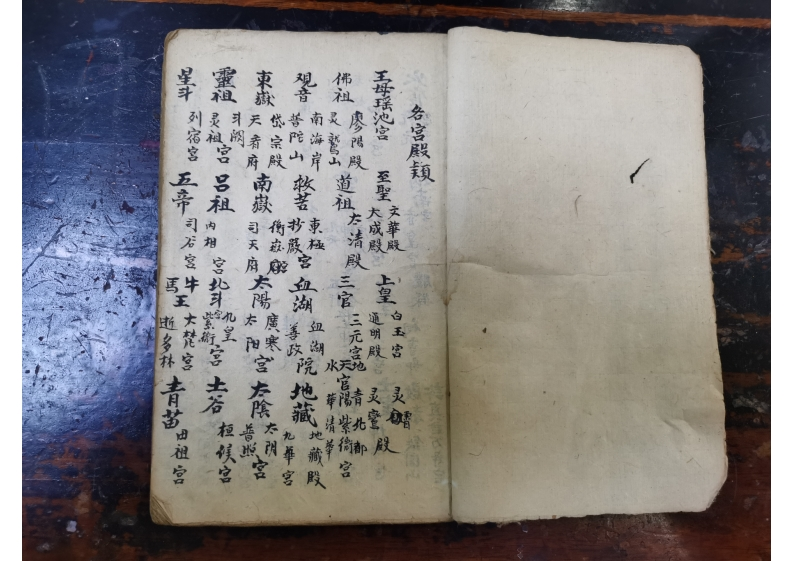 各宮殿類
王母瑤池宮 至聖 文華殿 大成殿 上皇 白玉宮 通明殿 灵霄殿
佛祖 廖陽殿 灵鷲山 道祖 太清殿 三官 三元宮 天官 地 水 陽 紫衛宮 青北都 華清
观音 南海岸 普陀山 救苦 東極宮 妙嚴 血湖 血湖院 善政 地藏 地藏殿 九華宮
東嶽 岱宗殿 天齊府 南嶽 衡嶽殿 司天府 太陽 廣寒宮 太阳 太陰 太阴宮 普照
靈祖 斗闕 灵祖宮 呂祖 內相宮 北斗 九皇宮 紫衛 土谷 桓候宮
星斗 列宿宮 五帝 司谷宮 牛王 大梵宮 馬 逝多林 青苗 田祖宮